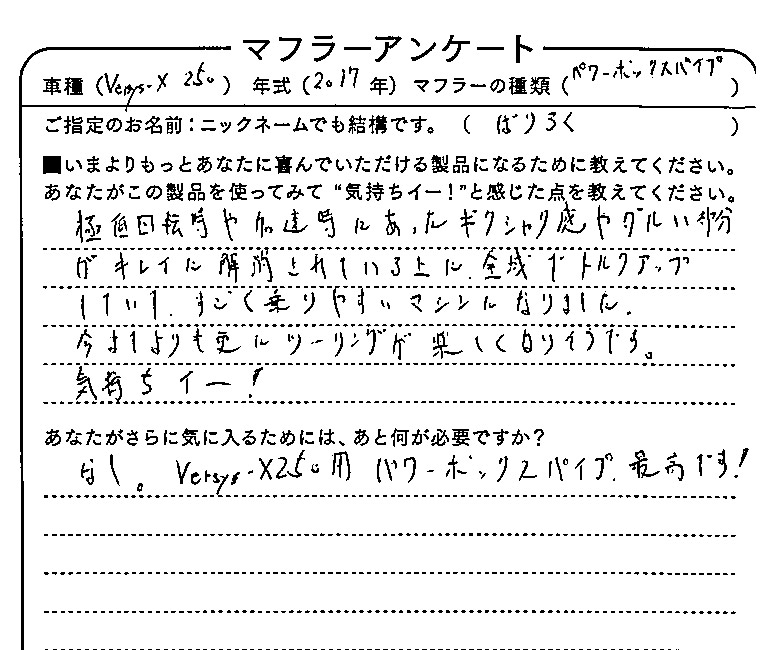 マフラーアンケート
車種（Versys-X 250） 年式（2017年） マフラーの種類（パワーボックスパイプ）
ご指定のお名前：ニックネームでも結構です。（ ばりろく ）
■いまよりもっとあなたに喜んでいただける製品になるために教えてください。
あなたがこの製品を使ってみて“気持ちイー！”と感じた点を教えてください。
極低回転時や加速時にあったギクシャク感やダルい部分
がキレイに解消されている上に、全域でトルクアップ
していて、すごく乗りやすいマシンになりました。
今までよりも更にツーリングが楽しくなりそうです。
気持ちイー！
あなたがさらに気に入るためには、あと何が必要ですか？
なし。Versys-X250用 パワーボックスパイプ、最高です！